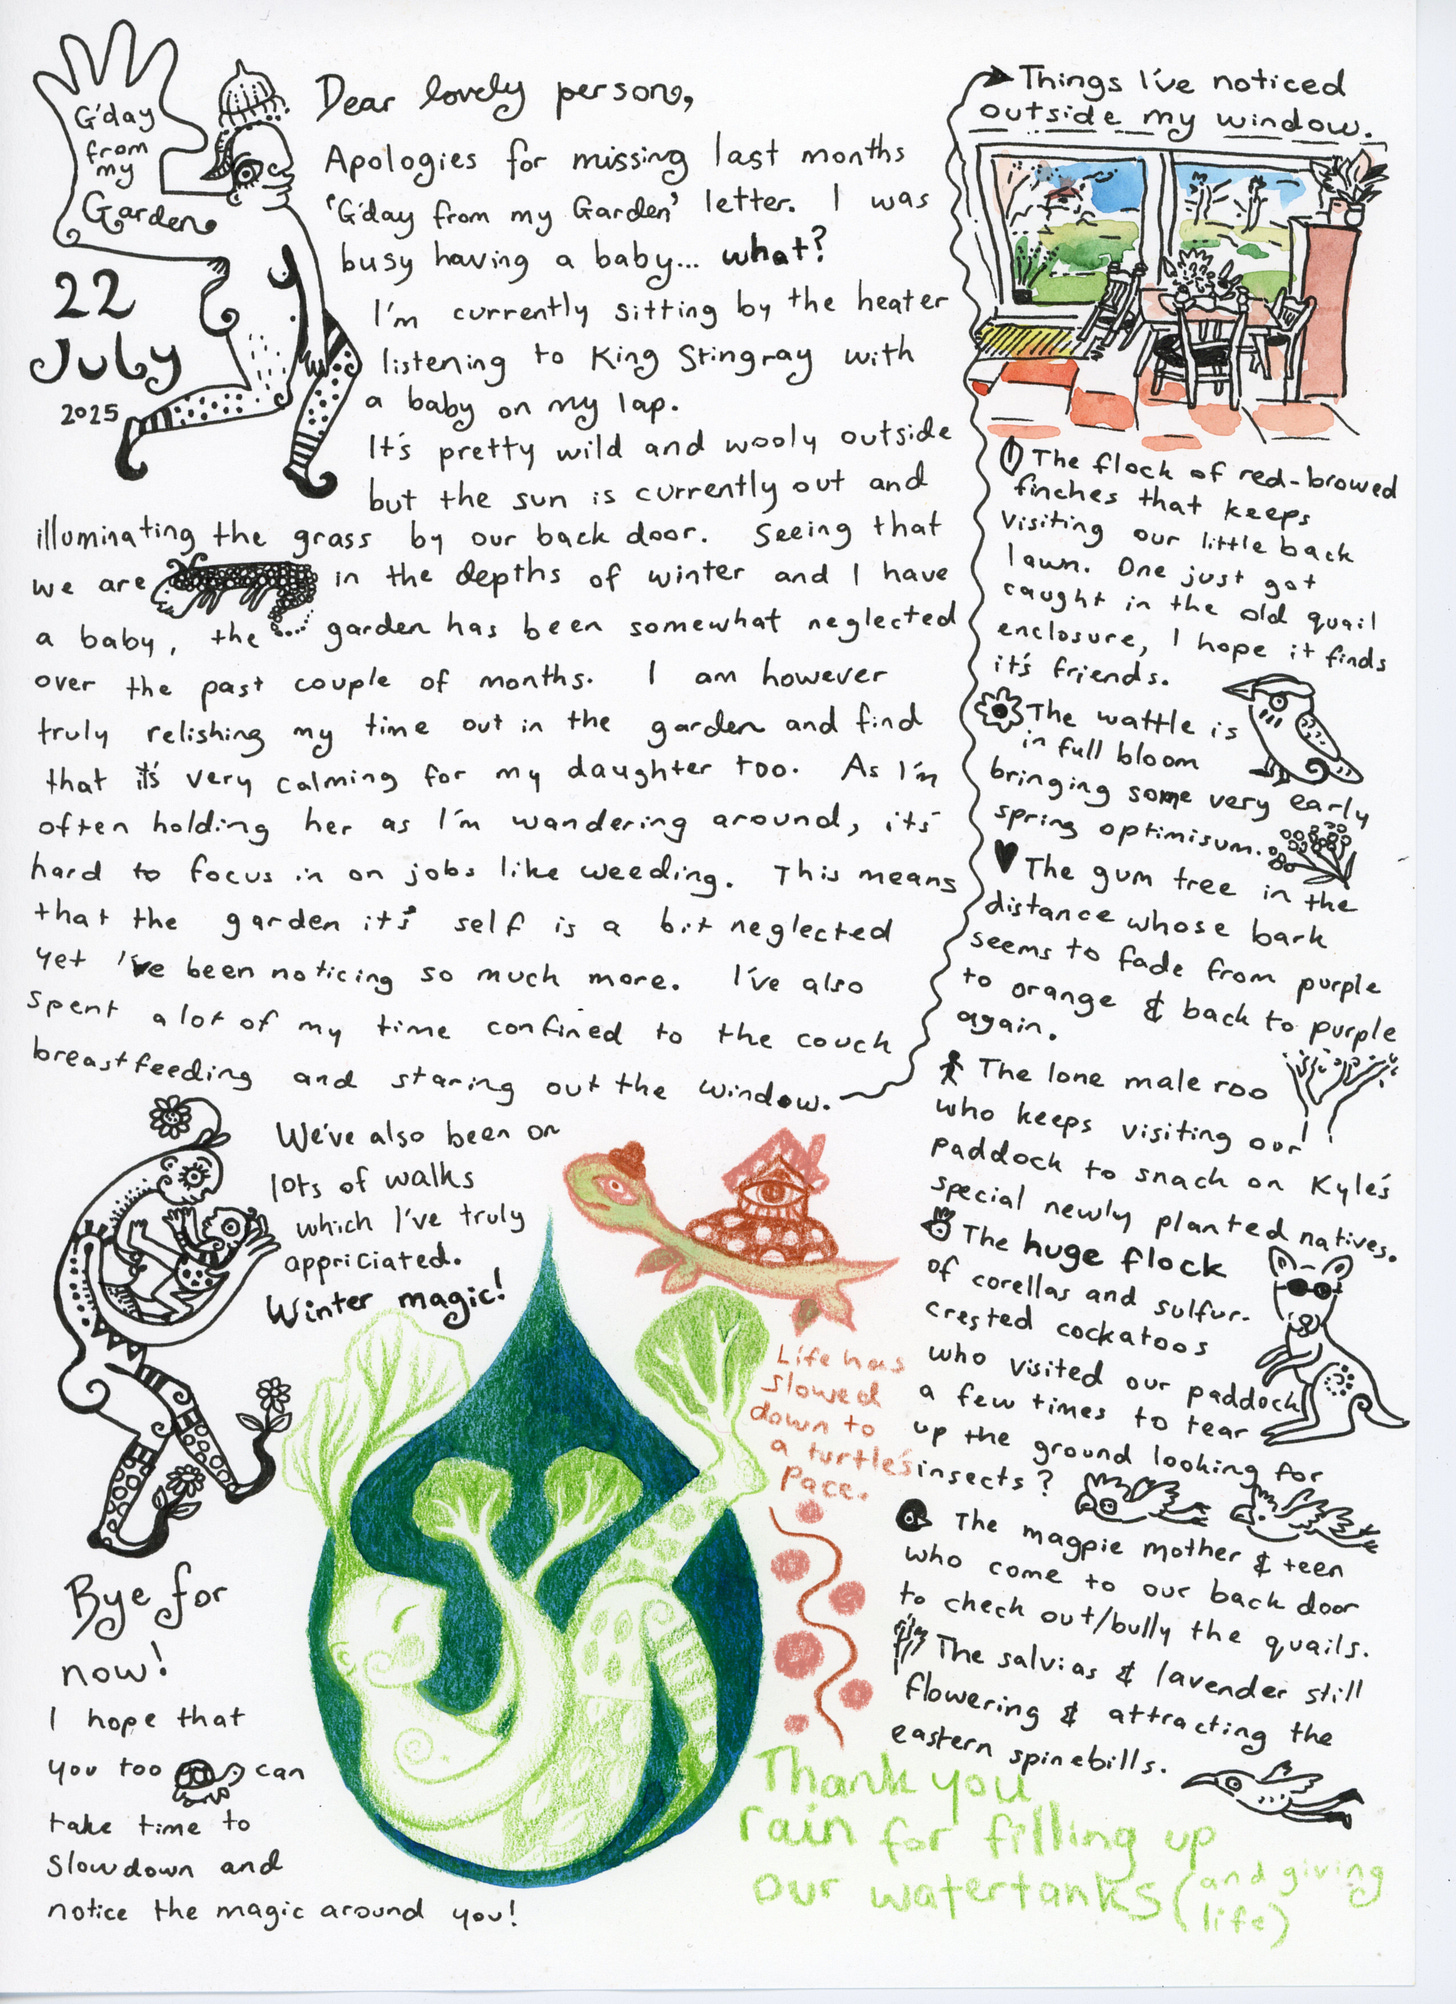 G'day
from
my
Garden
22
July
2025
Dear lovely person,
Apologies for missing last months
'G'day from my Garden' letter. I was
busy having a baby... what?
I'm currently sitting by the heater
listening to King Stingray with
a baby on my lap.
It's pretty wild and wooly outside
but the sun is currently out and
illuminating the grass by our back door. Seeing that
we are in the depths of winter and I have
a baby, the garden has been somewhat neglected
over the past couple of months. I am however
truly relishing my time out in the garden and find
that it's very calming for my daughter too. As I'm
often holding her as I'm wandering around, it's
hard to focus in on jobs like weeding. This means
that the garden it's self is a bit neglected
yet I've been noticing so much more. I've also
spent a lot of my time confined to the couch
breastfeeding and staring out the window.
We've also been on
lots of walks
which I've truly
appriciated.
Winter magic!
Bye for
now!
I hope that
you too can
take time to
slowdown and
notice the magic around you!
Things I've noticed
outside my window.
The flock of red-browed
finches that keeps
visiting our little back
lawn. One just got
caught in the old quail
enclosure, I hope it finds
it's friends.
The wattle is
in full bloom
bringing some very early
spring optimisum.
The gum tree in the
distance whose bark
seems to fade from purple
to orange & back to purple
again.
The lone male roo
who keeps visiting our
paddock to snack on Kyle's
special newly planted natives.
The huge flock
of corellas and sulfur-
crested cockatoos
who visited our paddock
a few times to tear
up the ground looking for
insects?
The magpie mother & teen
who come to our back door
to check out/bully the quails.
The salvias & lavender still
flowering & attracting the
eastern spinebills.
Life has
slowed
down to
a turtle's
pace.
Thank you
rain for filling up
our watertanks (and giving
life)